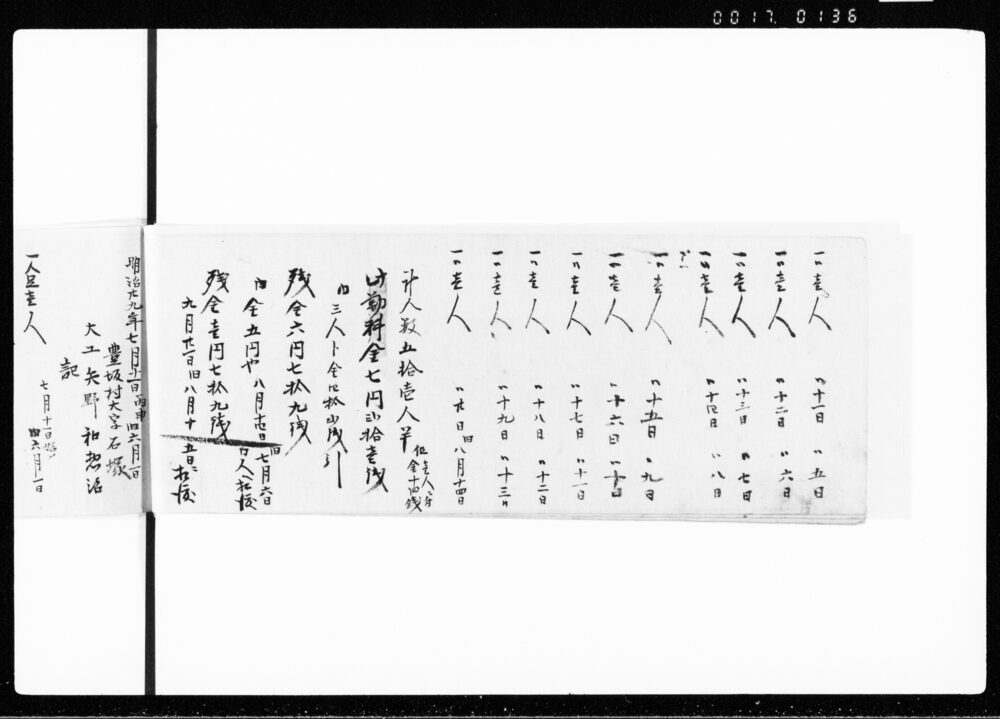 0017. 0136
一〃壱人 〃十一日 〃五日
一〃壱人 〃十二日 〃六日
一〃壱人 〃十三日 〃七日
一〃壱人 〃十四日 〃八日
一〃壱人 〃十五日 〃九日
一〃壱人 〃十六日 〃十日
一〃壱人 〃十七日 〃十一日
一〃壱人 〃十八日 〃十二日
一〃壱人 〃十九日 〃十三日
一〃壱人 〃廿日 旧八月十四日
計人数五拾壱人半 但壱人ニ分金十四銭
此勤料金七円弐拾壱銭
内三人ト金四拾弐銭引
残金六円七拾九銭
内金五円也 八月 日旧七月六日
残金壱円七拾九銭
九月廿一日旧八月十五日ニ払済
明治廿九年七月十一日丙申旧六月一日
豊坂村大字石塚
大工矢野和惣治
記
一人足壱人 七月十一日 旧六月一日